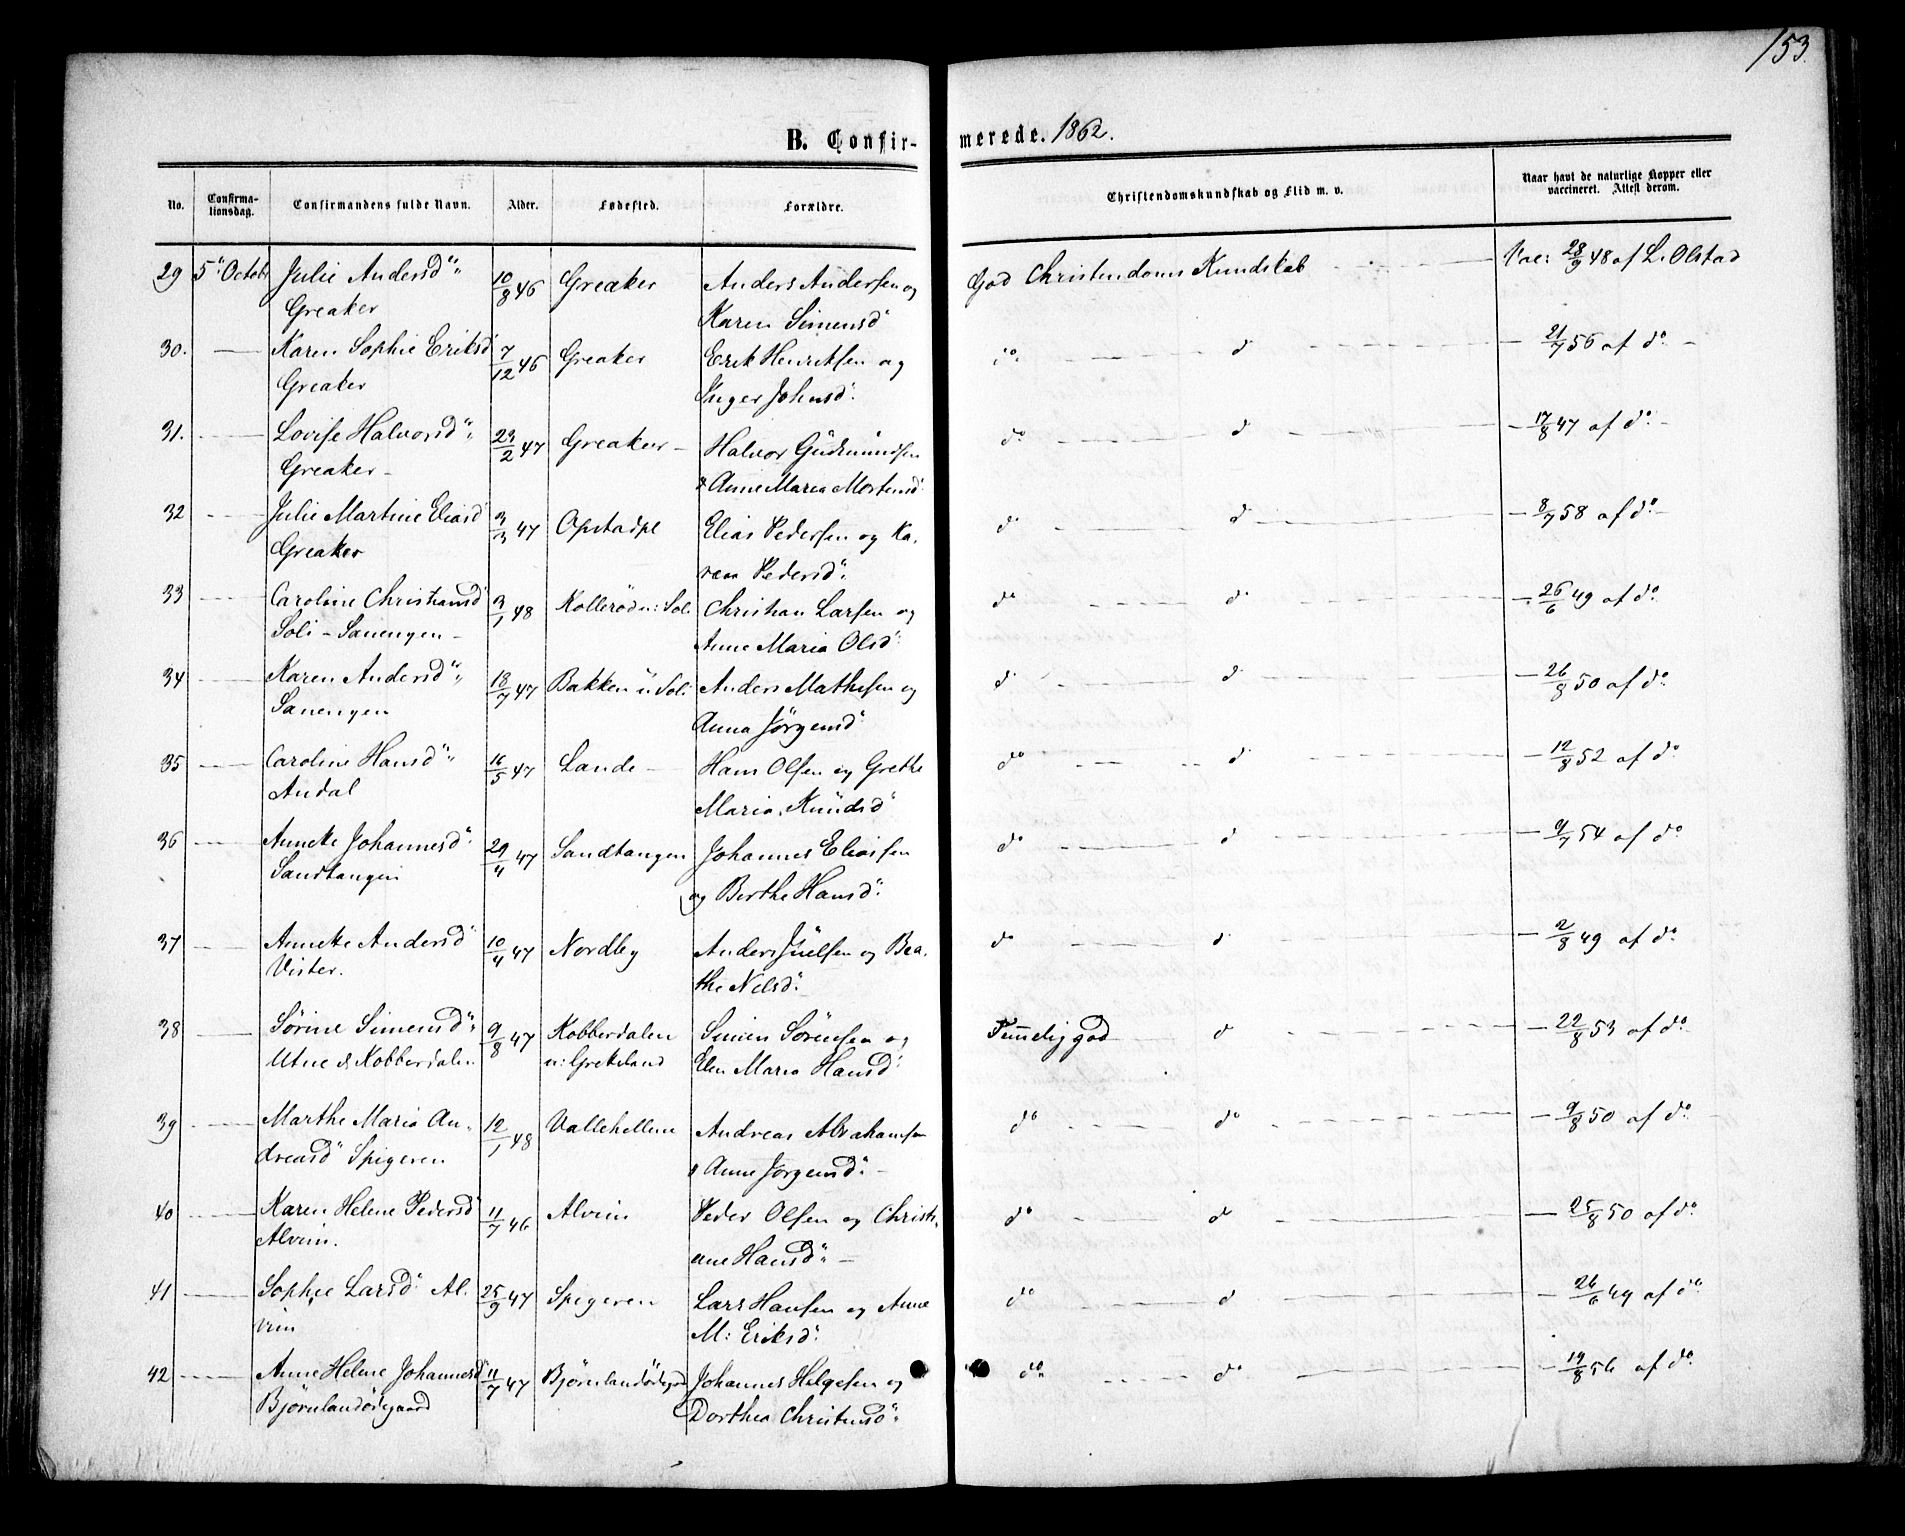 153
B. Confirmerede. 1862.
No. Confirmationsdag. Confirmandens fulde Navn. Alder. Fødested. Forældre. Christendomskundskab og Flid m. v. Naar havt de naturlige Kopper eller vaccineret. Attest derom.
29 5te Octobr Julie Andersd. 10/8 46 Greaker Anders Andersen og God Christendoms Kundskab Vac: 28/9 48 af L. Olstad
Greaker Karen Simensd
30. Karen Sophie Eriksd 7/12 46 Greaker Erik Henriksen og do d 21/7 56 af do
Greaker Inger Johnsd.
31. Lovise Halvorsd. 23/2 47 Greaker Halvor Gudmundsen do d 17/8 47 af do
Greaker & Anne Maria Mortensd
32 Julie Martine Eliasd 3/3 47 Opstadpl Elias Pedersen og Ka- do d 8/7 58 af do
Greaker ren Pedersd.
33 Caroline Christiansd 3/1 48 Kollerød u: Soli Christian Larsen og do do 26/6 49 af do
Soli - Sanengen Anne Maria Olsd.
34 Karen Andersd. 18/7 47 Bakken u Soli Anders Mathisen og d d 26/8 50 af do
Sanengen Anna Jörgensd
35 Caroline Hansd. 16/5 47 Lande Hans Olsen og Grethe do d 12/8 52 af do
Andal Maria Knudsd
36 Annette Johannesd 29/4 47 Sandtangen Johannes Eliasen do d 9/7 54 af do
Sandtangen og Berthe Hansd.
37 Annette Andersd 10/4 47 Nordby Anders Juelsen og Bea- do d 2/8 49 af do
Vister. the Nilsd.
38 Sörine Simensd. 9/8 47 Kobberdalen Simen Sörensen og Temmelig god d 22/8 53 af do
Utne & Kobberdalen u: Grekeland Elen Maria Hansd
39 Marthe Maria An- 12/1 48 Vallehellene Andreas Abrahamsen do do 9/8 50 af do
dreasd Spigeren & Anne Jörgensd.
40 Karen Helene Pedersd 11/7 46 Alvim Peder Olsen og Christi- do d 25/8 50 af do
Alvim. ane Hansd.
41 Sophie Larsd. Al- 25/9 47 Spigeren Lars Hansen og Anne do d 26/6 49 af do
vim M: Eriksd.
42 Anne Helene Johannesd 11/7 47 Bjørnlandødegaard Johannes Helgesen og do do 19/8 56 af do
Bjørnlandødegaard Dorthea Christensd.